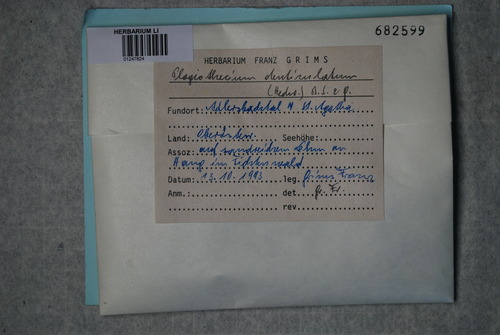 HERBARIUM LI
01247824
682599
HERBARIUM FRANZ GRIMS
Plagiothecium denticulatum
(Hedw.) B.S. e G.
Fundort: Adlersbachtal N St. Agatha
Land: Oberösterr. Seehöhe:
Assoz: auf sandreichem Lehm am
Hang im Fichtenwald
Datum: 13.10.1983 leg. Grims Franz
Anm.: det. Gr. Fr.
rev.